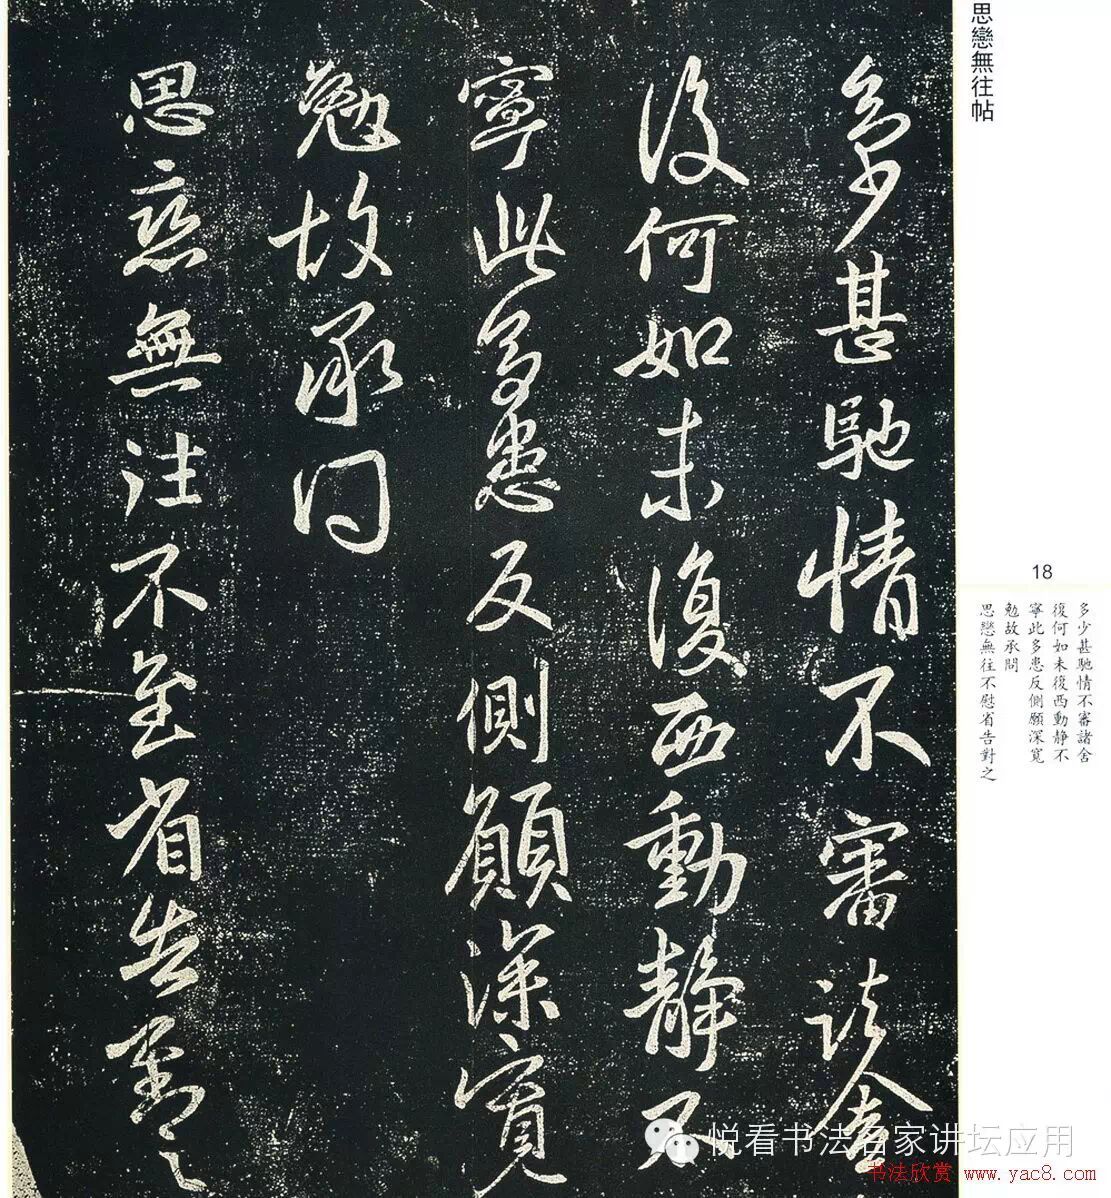 多少甚馳情不審諸舍
復何如未復西動静不
寧此多患反側願深寬
勉故承問
思戀無往不慰省告對之
思戀無往帖
18
多少甚馳情不審諸舍
復何如未復西動静不
寧此多患反側願深寬
勉故承問
思戀無往不慰省告對之
悦看书法名家讲坛应用
书法欣赏 www.yac8.com